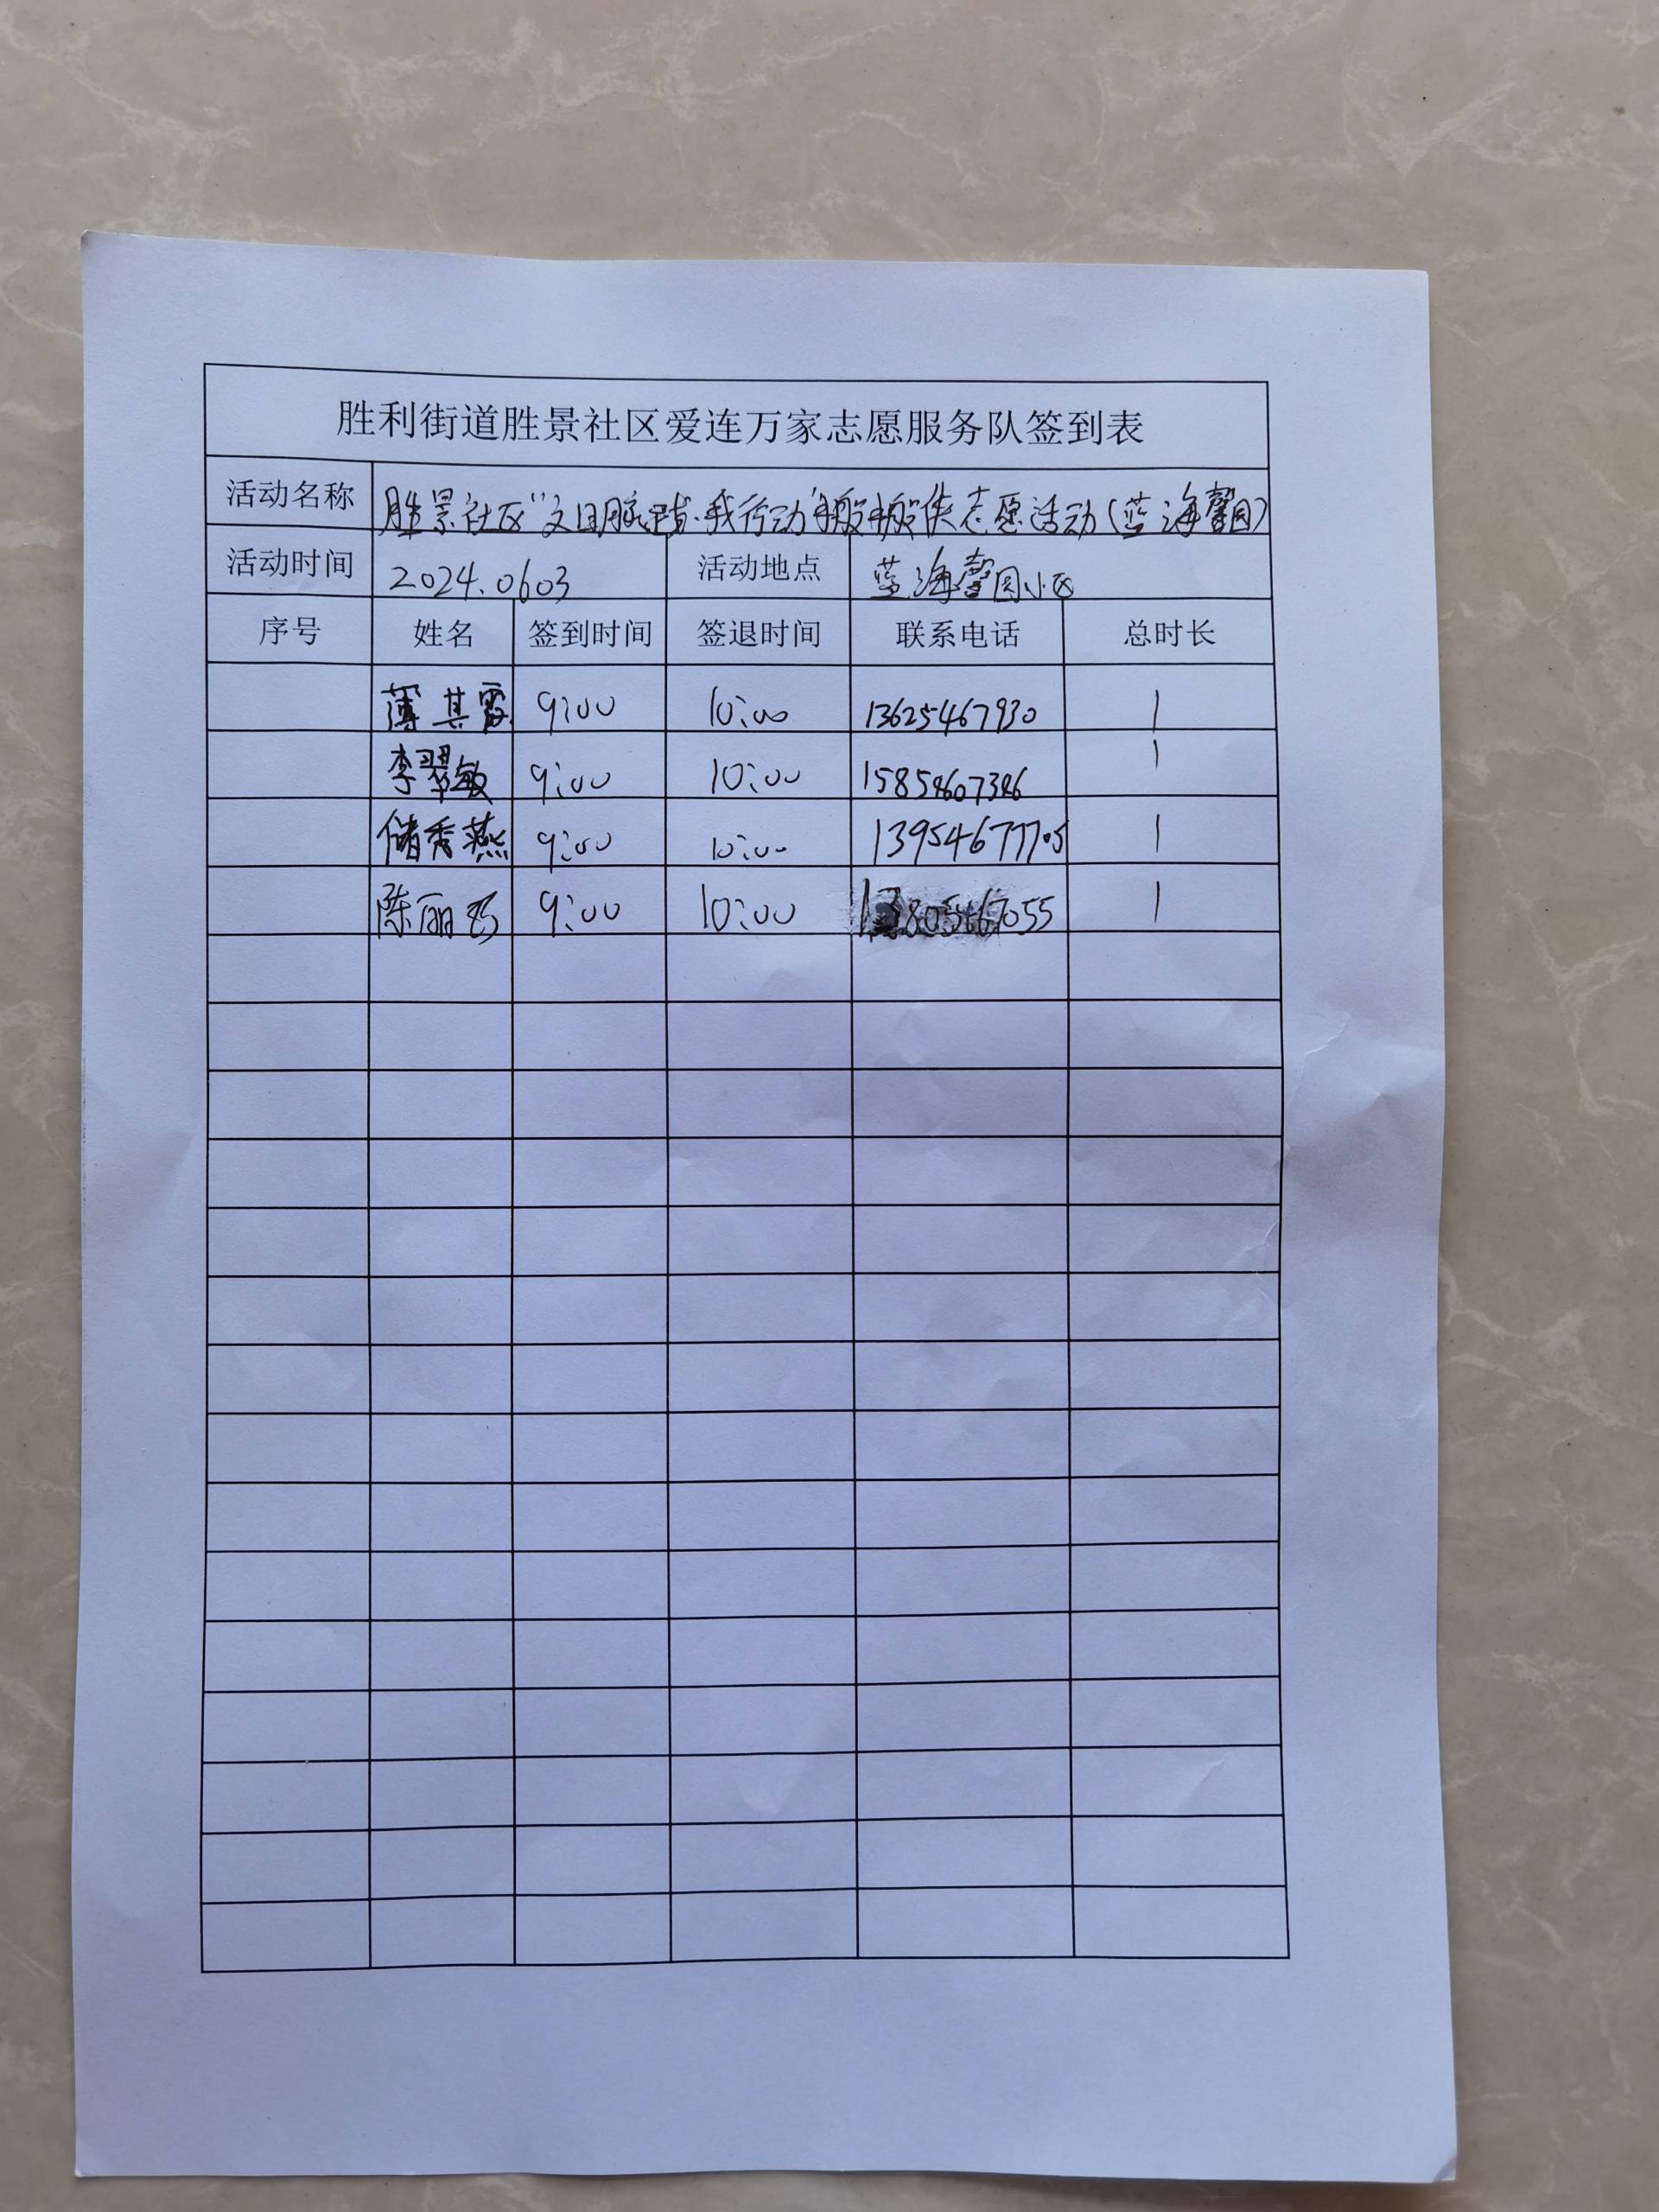 胜利街道胜景社区爱连万家志愿服务队签到表
活动名称 胜景社区“文明 我行动” 志愿活动(蓝海馨园)
活动时间 2024.0603 活动地点 蓝海馨园小区
序号 姓名 签到时间 签退时间 联系电话 总时长
薄其霞 9:00 10:00 13625467930 1
李翠敏 9:00 10:00 1
储秀燕 9:00 10:00 13954677705 1
陈丽 9:00 10:00 1